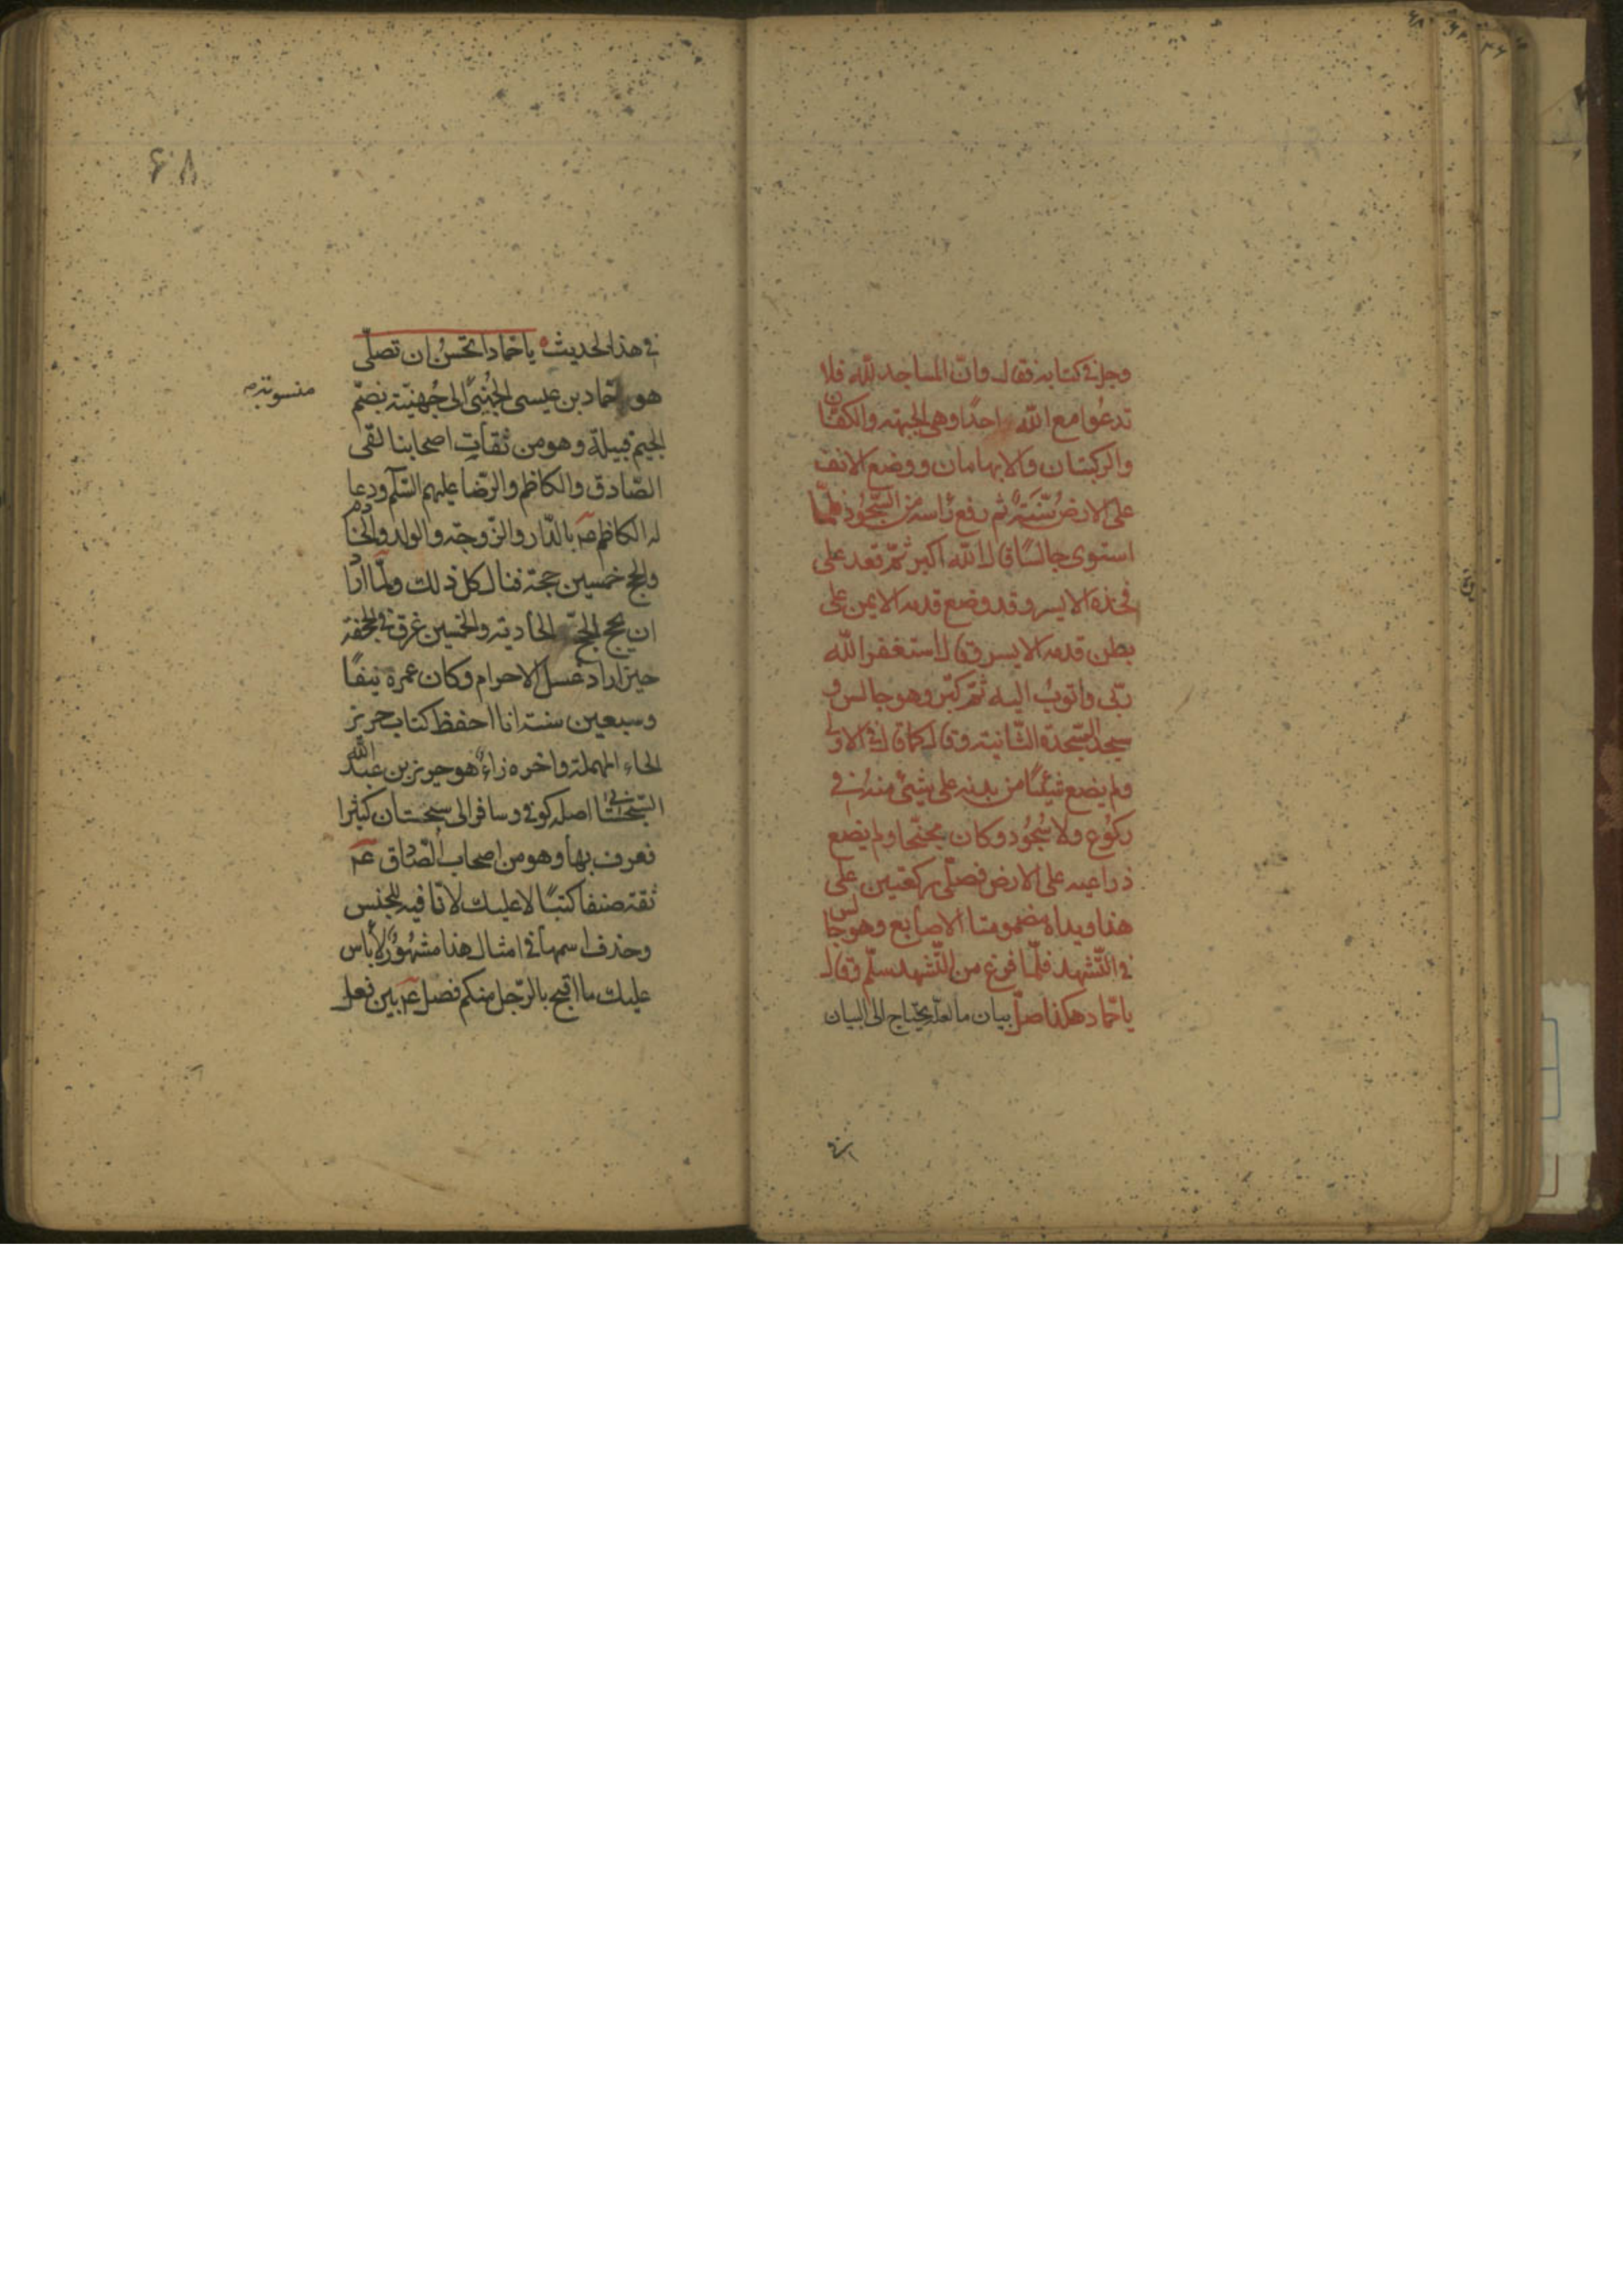 وجل في كتابه فقال وانّ المساجد للّه فلا
تدعُوا مع اللّه احدًا وهي الجبهة والكفّان
والركبتان والابهامان ووضع الانف
على الارض سُنّةً ثم رفع رأسه من السّجُود فلمّا
استوى جالسًا قال اللّه اكبر ثمّ قعد على
فخذه الايسر وقد وضع قدمه الايمن على
بطن قدمه الايسر وقال استغفر اللّه
ربّى واتوبُ اليه ثمّ كبّر وهو جالس و
سجد السّجدة الثّانية وقال كما قال في الاولى
ولم يضع شيئًا من بدنه على شيئ منه في
ركُوع ولا سُجُود وكان مجنّحا ولم يضع
ذراعيه على الارض فصلّى ركعتين على
هذا ويداه مضمومتا الاصابع وهو جالس
في التّشهد فلمّا فرغ من التّشهد سلّم وقال
يا حمّاد هكذا صلّ بيان ما لعلّه يحتاج الى البيان
في هذا الحديث يا حمّاد اتحسنُ ان تصلّى
هو حمّاد بن عيسى الجُهنىّ الى جُهنيّة بضمّ
منسوبة
الجيم قبيلة وهو من ثقات اصحابنا لقى
الصّادق والكاظم والرّضا عليهم السّلم ودعا
له الكاظم بالدّار والزّوجة والولد والخادم
والحج خمسين حجة فنال كل ذلك ولمّا اراد
ان يحج الحادية والخمسين غرق في الجحفة
حين اراد غسل الاحرام وكان عمره نيّفًا
وسبعين سنة انا احفظ كتاب حريز
الحاء المهملة واخره زاءٌ هو حريز بن عبد اللّه
السّجستانى اصله كوفي وسافر الى سجستان كثيرا
فعرف بها وهو من اصحاب الصّادق عم
ثقة صنف كتبًا لا عليك لا نافيه للجنس
وحذف اسمها في امثال هذا مشهُورٌ لاباس
عليك ما اقبح بالرّجل منكم فصل عم بين فعل
۶۸